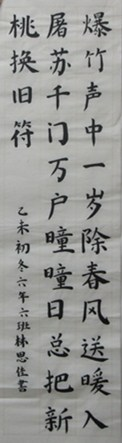 爆竹声中一岁除春风送暖入
屠苏千门万户曈曈日总把新
桃换旧符
乙未初冬六年六班林思佳書